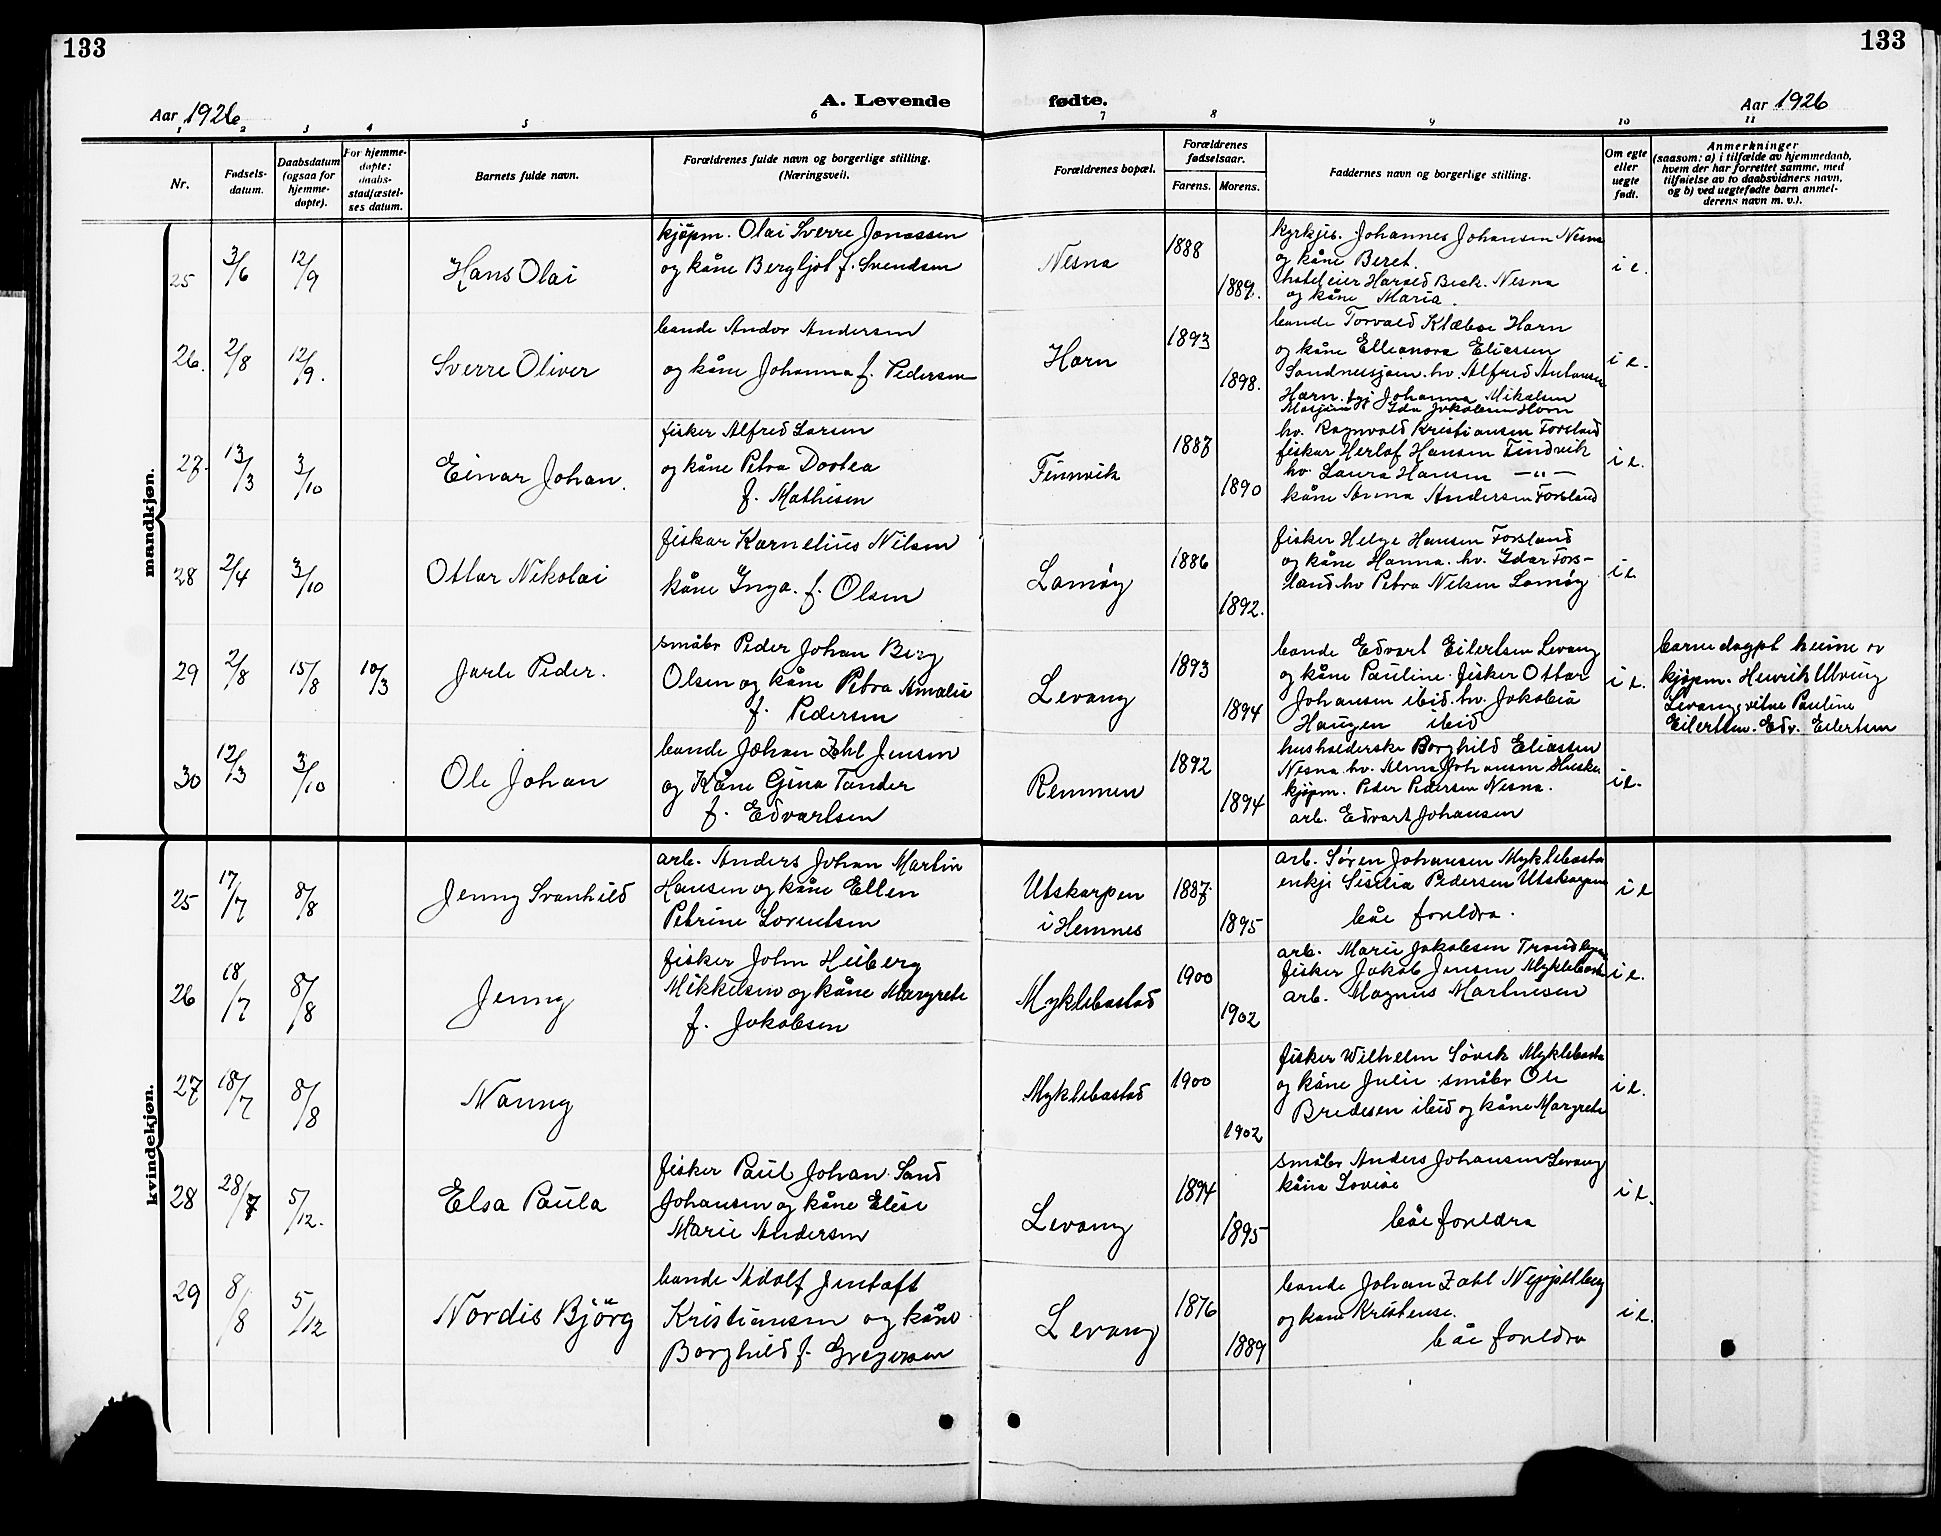 133
133
Aar 1926
A. Levende
fødte.
Aar 1926
1 2 3 4 5 6 7 8 9 10 11
Nr.
Fødsels-
datum.
Daabsdatum
(ogsaa for
hjemme-
døpte).
For hjemme-
døpte:
daabs-
stadfæstel-
ses datum.
Barnets fulde navn.
Forældrenes fulde navn og borgerlige stilling.
(Næringsvei).
Forældrenes bopæl.
Forældrenes
fødselsaar.
Farens. Morens.
Faddernes navn og borgerlige stilling.
Om egte
eller
uegte
født.
Anmerkninger
(saasom: a) i tilfælde av hjemmedaab,
hvem der har forrettet samme, med
tilføielse av to daabsvidners navn,
og b) ved uegtefødte barn anmel-
derens navn m. v.).
mandkjøn.
25 3/6 12/9 Hans Olai
kjøpm. Olai Sverre Jonassen
og kåne Bergljot f. Svendsen
Nesna 1888 1889.
kyrkjes. Johannes Johansen Nesna
og kåne Beret.
hoteleier Harald Beck. Nesna
og kåne Maria.
i e.
26. 2/8 12/9. Sverre Oliver
bonde Andor Andersen
og kåne Johanna f. Pedersen
Horn 1893 1898.
bonde Torvald Klæboe Horn
og kåne Elleanora Eliassen
Sandnessjøen. hv. Alfred Antonsen
Horn. Johanna Mikalsen
Mosjøen Ida Jakobsen Horn
i e.
27. 13/3 3/10 Einar Johan.
fisker Alfred Larsen
og kåne Petra Dortea
f. Mathisen
Finnvik 1887 1890
hv. Ragnvald Kristiansen Forsland
fiskar Herlof Hansen Findvik
hv. Laura Hansen — " —
kåne Anna Andersen Forsland
i e.
28 2/4 3/10 Ottar Nikolai
fiskar Kornelius Nilsen
kåne Inga. f. Olsen
Lamøy 1886 1892.
fisker Helge Hansen Forsland
og kåne Hanna. hv. Idar Fors-
land hv Petra Nelsen Lamøy
i e.
29 2/8 15/8 10/3 Jarle Peder.
småbr Peder Johan Berg
Olsen og kåne Petra Amalie
f. Pedersen
Levang 1893 1894
bonde Edvart Eilertsen Levang
og kåne Pauline. fisker Ottar
Johansen ibid. hv. Jakobia
Haugen ibid
i e.
barnedøypt heime av
kjøpm. Henrik Ulvung
Levang, vitne Pauline
Eilertsen. Edv. Eilertsen
30 12/3 3/10 Ole Johan
bonde Johan Zahl Jensen
og Kåne Gina Tander
f. Edvartsen
Remmen 1892 1894
husholderske Borghild Eliassen
Nesna hv. Alma Johansen Husker
kjøpm. Peder Pedersen Nesna.
arb. Edvart Johansen
i e.
kvindekjøn.
25 17/7 8/8 Jenny Svanhild
arb. Anders Johan Martin
Hansen og kåne Ellen
Petrine Lorentsen
Utskarpen
i Hemnes
1887. 1895
arb. Søren Johansen Myklebosta
enkje Sisilia Pedersen Utskarpen
båe foreldra.
i e
26 18/7 8/8 Jenny
fisker John Heiberg
Mikkelsen og kåne Margrete
f. Jakobsen
Myklebostad 1900 1902
arb. Marie Jakobsen
fisker Jakob Jensen Myklebosta
arb. Magnus Martinesen
i e.
27 18/7 8/8 Nanny
Myklebostad 1900 1902
fisker Wilhelm Søvik Myklebosta
og kåne Julie. småbr Ole
Bredesen ibid og kåne Margrete
i e.
28 28/7 5/12. Elsa Paula
fisker Paul Johan Sand
Johansen og kåne Elise
Marie Andersen
Levang 1894 1895
småbr Anders Johansen Levang
kåna Lovise
båe foreldra
i e.
29 8/8 5/12 Nordis Björg
bonde Adolf Jentoft
Kristiansen og kåne
Borghild f. Gregersen
Levang 1876 1889
bonde Johan Zahl
og kone Kristense.
båe foreldra
i e.